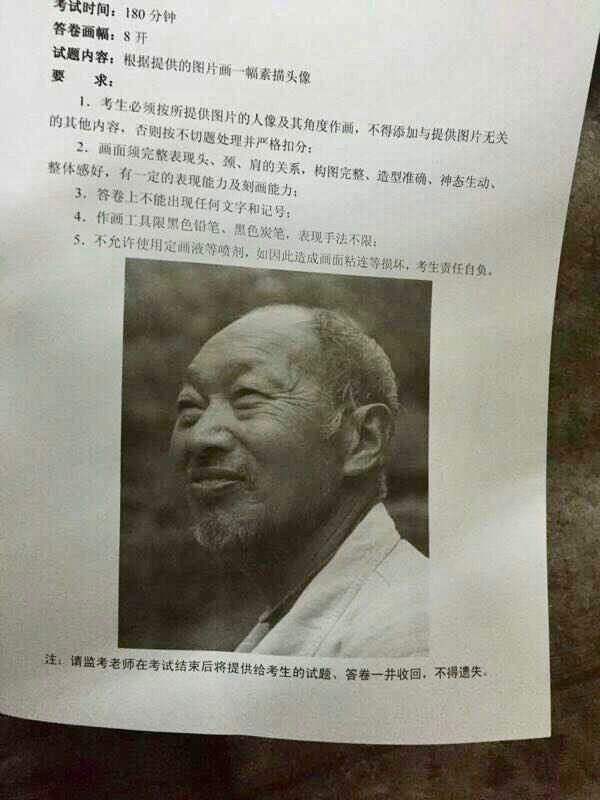 考试时间：180 分钟
答卷画幅：8 开
试题内容：根据提供的图片画一幅素描头像
要　　求：
1．考生必须按所提供图片的人像及其角度作画，不得添加与提供图片无关
的其他内容，否则按不切题处理并严格扣分；
2．画面须完整表现头、颈、肩的关系，构图完整、造型准确、神态生动、
整体感好，有一定的表现能力及刻画能力；
3．答卷上不能出现任何文字和记号；
4．作画工具限黑色铅笔、黑色炭笔，表现手法不限；
5．不允许使用定画液等喷剂，如因此造成画面粘连等损坏，考生责任自负。
注：请监考老师在考试结束后将提供给考生的试题、答卷一并收回，不得遗失。